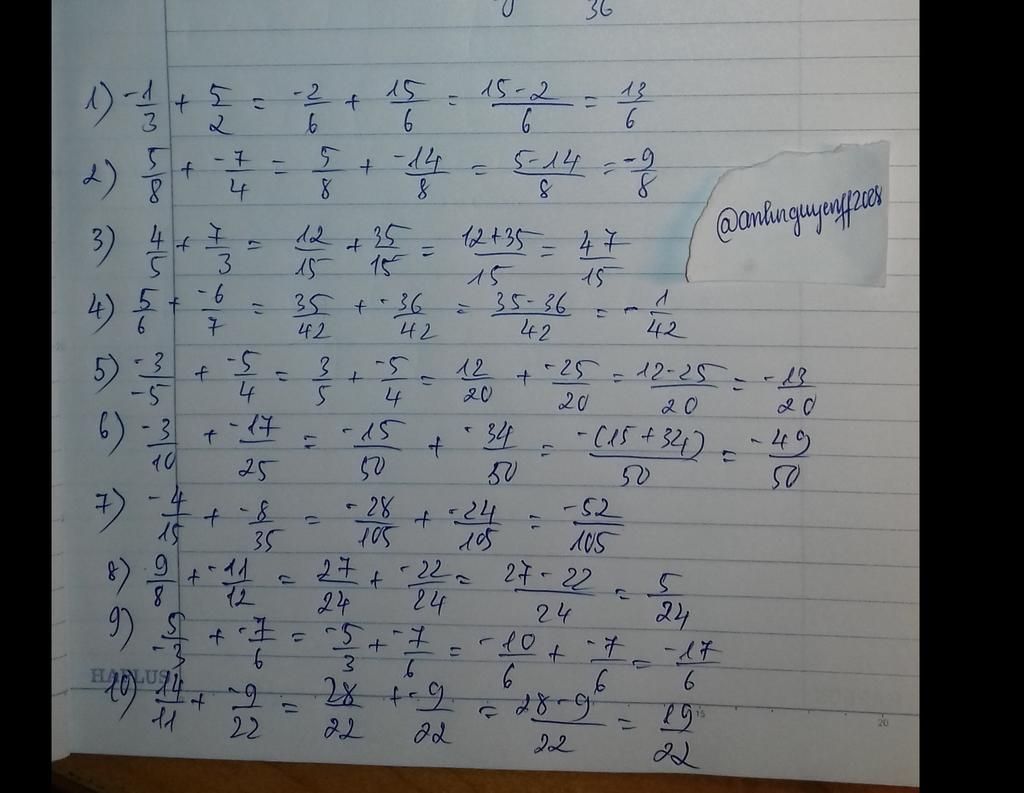 36
1) -1/3 + 5/2 = -2/6 + 15/6 = 15-2/6 = 13/6
2) 5/8 + -7/4 = 5/8 + -14/8 = 5-14/8 = -9/8
@anhnguyenff2008
3) 4/5 + 7/3 = 12/15 + 35/15 = 12+35/15 = 47/15
4) 5/6 + -6/7 = 35/42 + -36/42 = 35-36/42 = -1/42
5) -3/-5 + -5/4 = 3/5 + -5/4 = 12/20 + -25/20 = 12-25/20 = -13/20
6) -3/10 + -17/25 = -15/50 + -34/50 = -(15+34)/50 = -49/50
7) -4/15 + -8/35 = -28/105 + -24/105 = -52/105
8) 9/8 + -11/12 = 27/24 + -22/24 = 27-22/24 = 5/24
9) 5/-3 + -7/6 = -5/3 + -7/6 = -10/6 + -7/6 = -17/6
10) 14/11 + -9/22 = 28/22 + -9/22 = 28-9/22 = 19/22
15 20